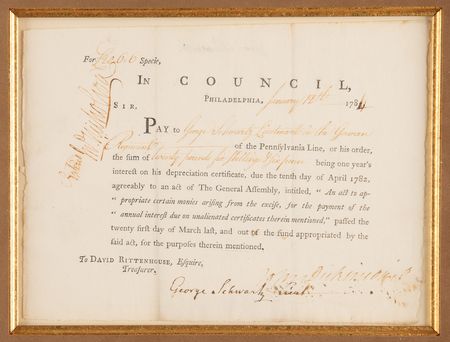 For £20 6 6 Specie,
IN COUNCIL,
PHILADELPHIA, January 14th 1784
SIR,
PAY to George Schwartz Lieutenant in the German
Regiment of the Pennsylvania Line, or his order,
the sum of twenty pounds six shillings & sixpence being one year's
interest on his depreciation certificate, due the tenth day of April 1782,
agreeably to an act of The General Assembly, intitled, "An act to ap-
"propriate certain monies arising from the excise, for the payment of the
"annual interest due on unalienated certificates therein mentioned," passed the
twenty first day of March last, and out of the fund appropriated by the
said act, for the purposes therein mentioned.
To DAVID RITTENHOUSE, Esquire,
Treasurer.
John Dickinson
George Schwartz Lieut